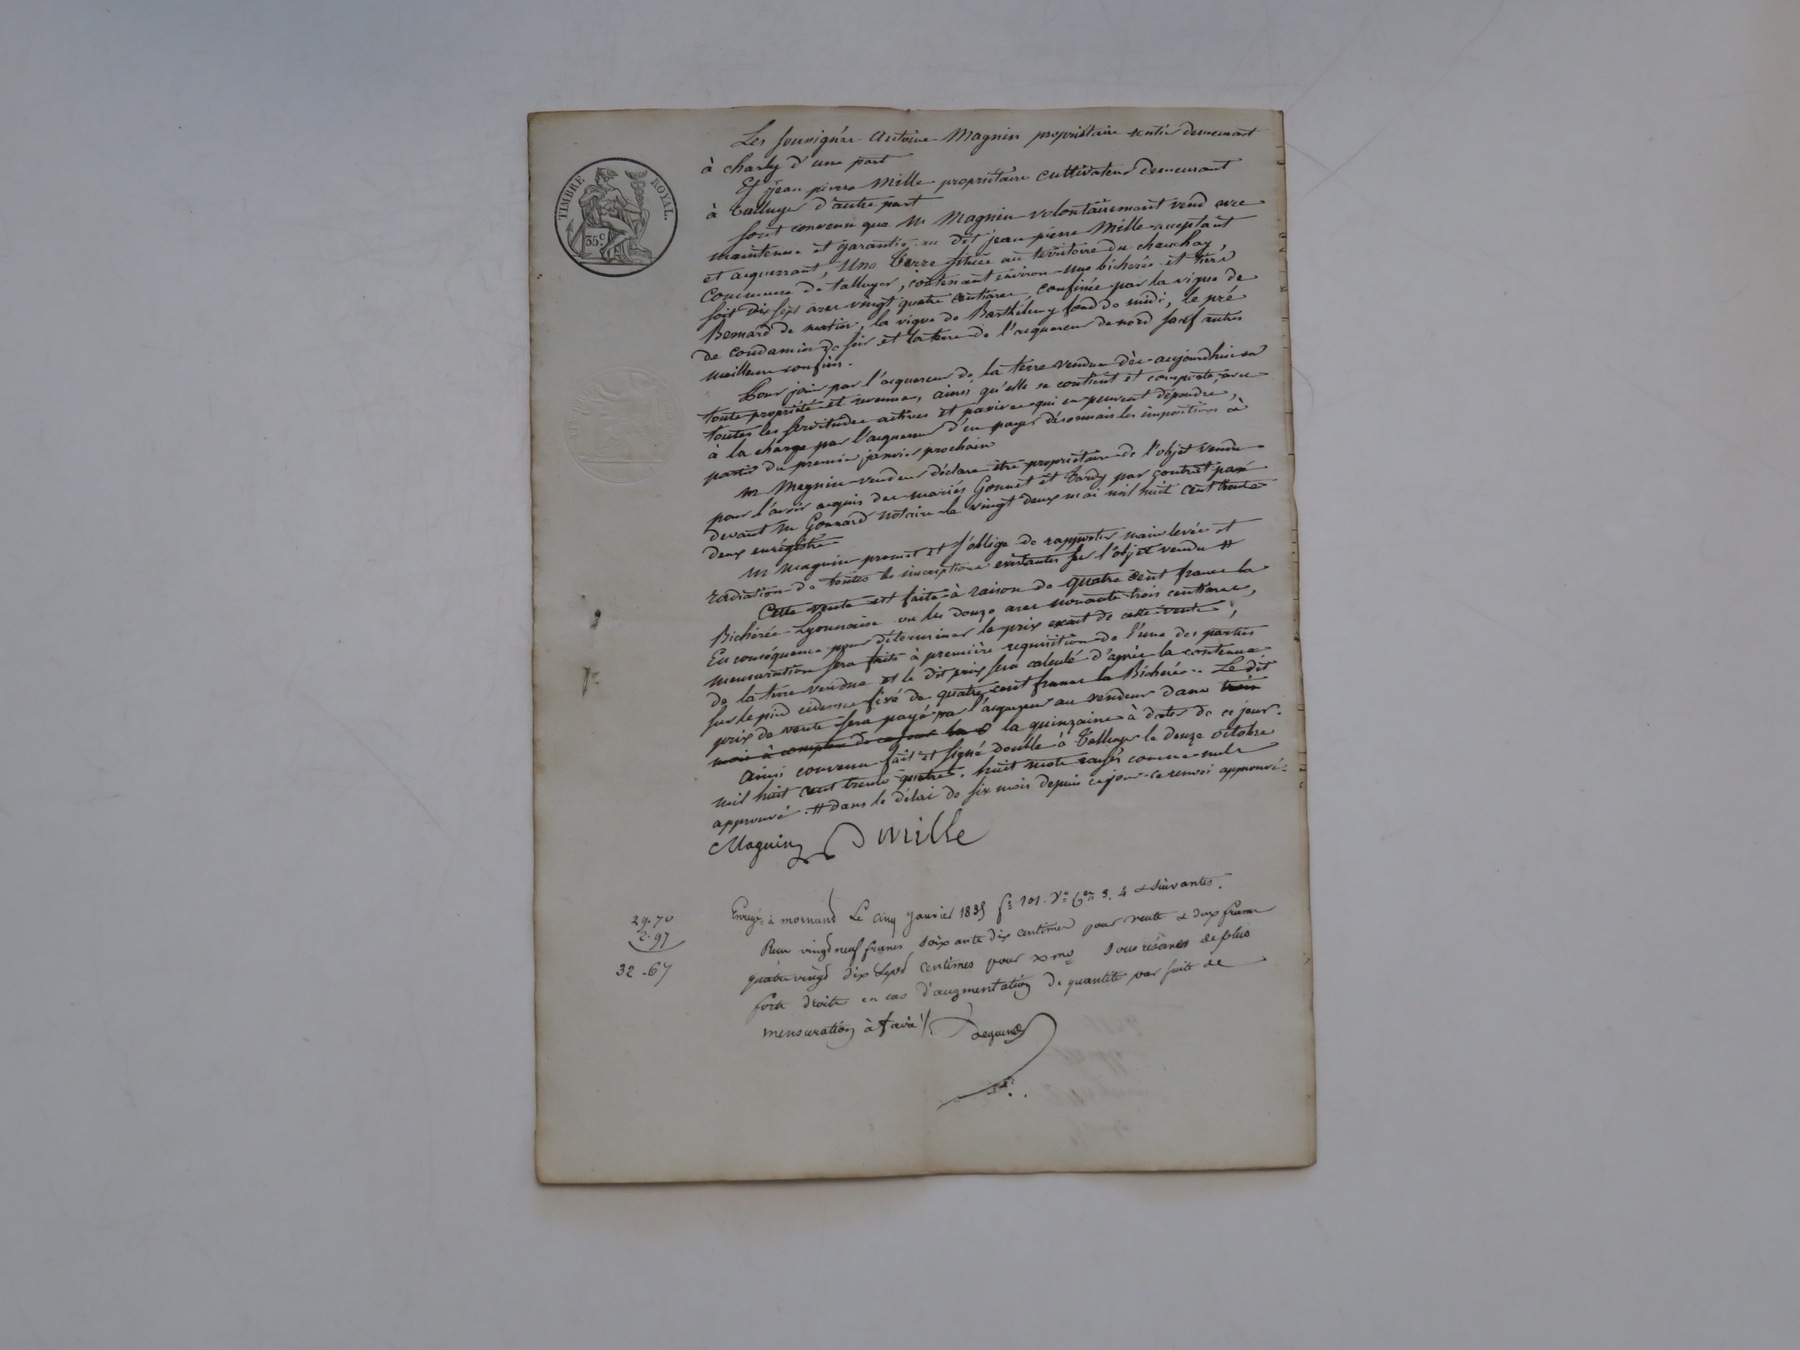 TIMBRE ROYAL.
35 c
Les soussignés Antoine Magnin propriétaire rentier demeurant
à charly d'une part
Et jean pierre Mille propriétaire cultivateur demeurant
à Talluyer d'autre part
sont convenu que Mr Magnin volontairement vend avec
maintenue et garantie au dit jean pierre Mille acceptant
et acquerrant, Une Terre située au territoire du chauchay,
Commune de talluyer, contenant environ une bicherée et tiers
soit Dix sept ares vingt quatre centiares, confinée par la vigne de
Bernard de matin, la vigne de Barthélemy fond de midi, le pré
de condamin de soir et la terre de l'acquereur de nord sauf autres
meilleurs confins.
Pour jouir par l'acquereur de la terre vendue dès aujourdhui en
toute propriété et revenus, ainsi qu'elle se contient et comporte, avec
toutes les servitudes actives et passives qui en peuvent dépendre,
à la charge par l'acquereur d'en payer désormais les impositions à
partir du premier janvier prochain
Mr Magnin vendeur déclare être propriétaire de l'objet vendu
pour l'avoir acquis des mariés Gonnet et Tardy par contrat passé
devant Me Gonnard notaire le vingt deux mai mil huit cent trente
deux enrégistré
Mr Magnin promet et s'oblige de rapporter main levée et
radiation de toutes les inscriptions existantes sur l'objet vendu #
Cette vente est faite à raison de quatre cent francs la
Bicherée Lyonnaise ou les douze ares nonante trois centiares,
En conséquence pour déterminer le prix exact de cette vente,
mensuration sera faite à première requisition de l'une des parties
de la terre vendue et le dit prix sera calculé d'après la contenue
sur le pied cidessus fixé de quatre cent francs la Bicherée. Le dit
prix de vente sera payé par l'acquereur au vendeur dans trois
mois à compter de ce jour la quinzaine à dater de ce jour.
Ainsi convenu fait et signé double à Talluyer le douze octobre
mil huit cent trente quatre. huit mots rayés comme nuls
approuvé. # dans le délai de six mois depuis ce jour ce renvoi approuvé
Magnin Mille
29.70
2.97
32.67
Enregé à mornant Le cinq janvier 1835 fo 101. Vo Cen 3. 4 & suivantes.
Reçu vingt neuf francs soixante dix centimes pour vente & deux francs
quatre vingt dix sept centimes pour xme sous réserves de plus
forts droits en cas d'augmentation de quantité par suite de
mensuration à faire